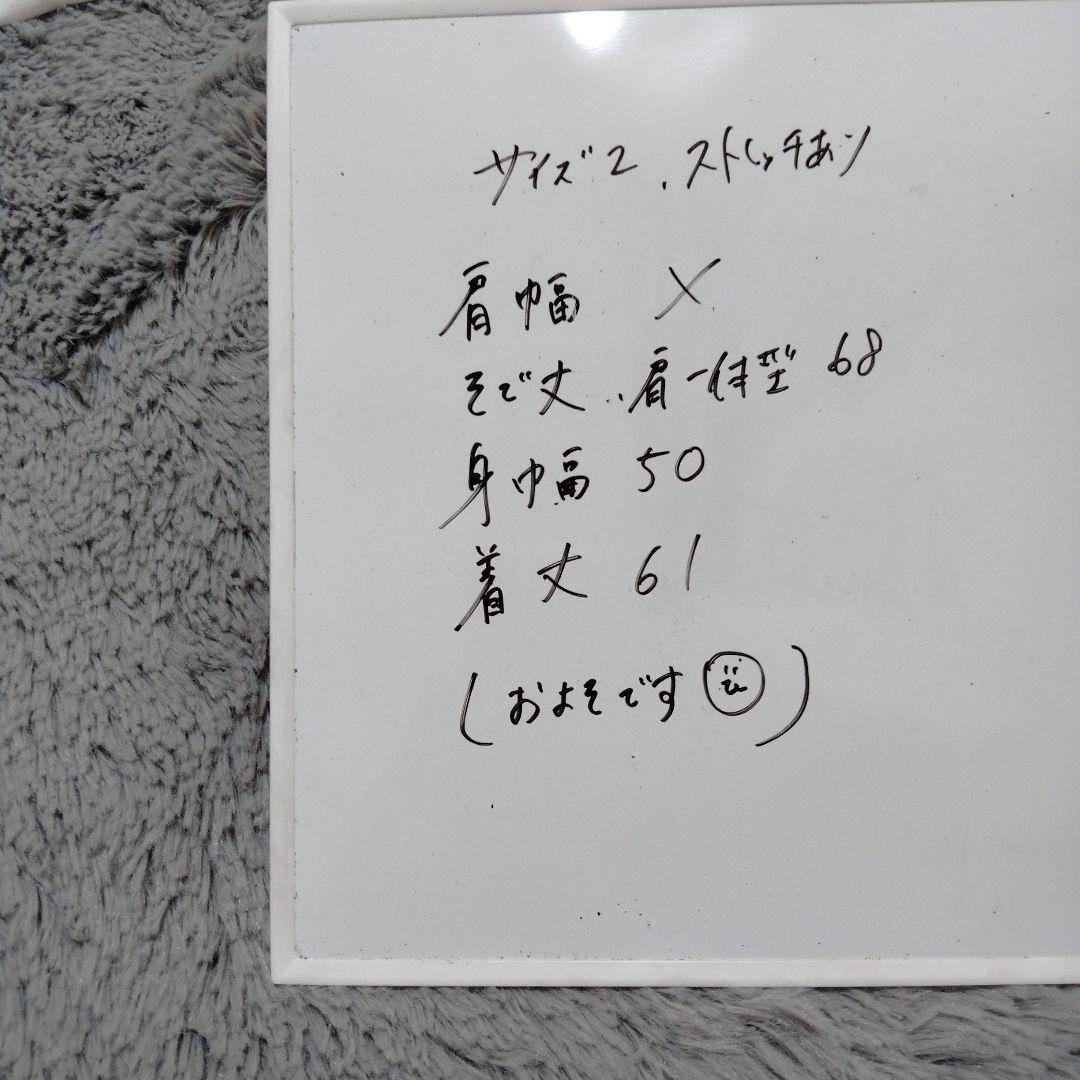 サイズ2、ストレッチあり
肩幅 ×
そで丈、肩一体型 68
身幅 50
着丈 61
(およそです)